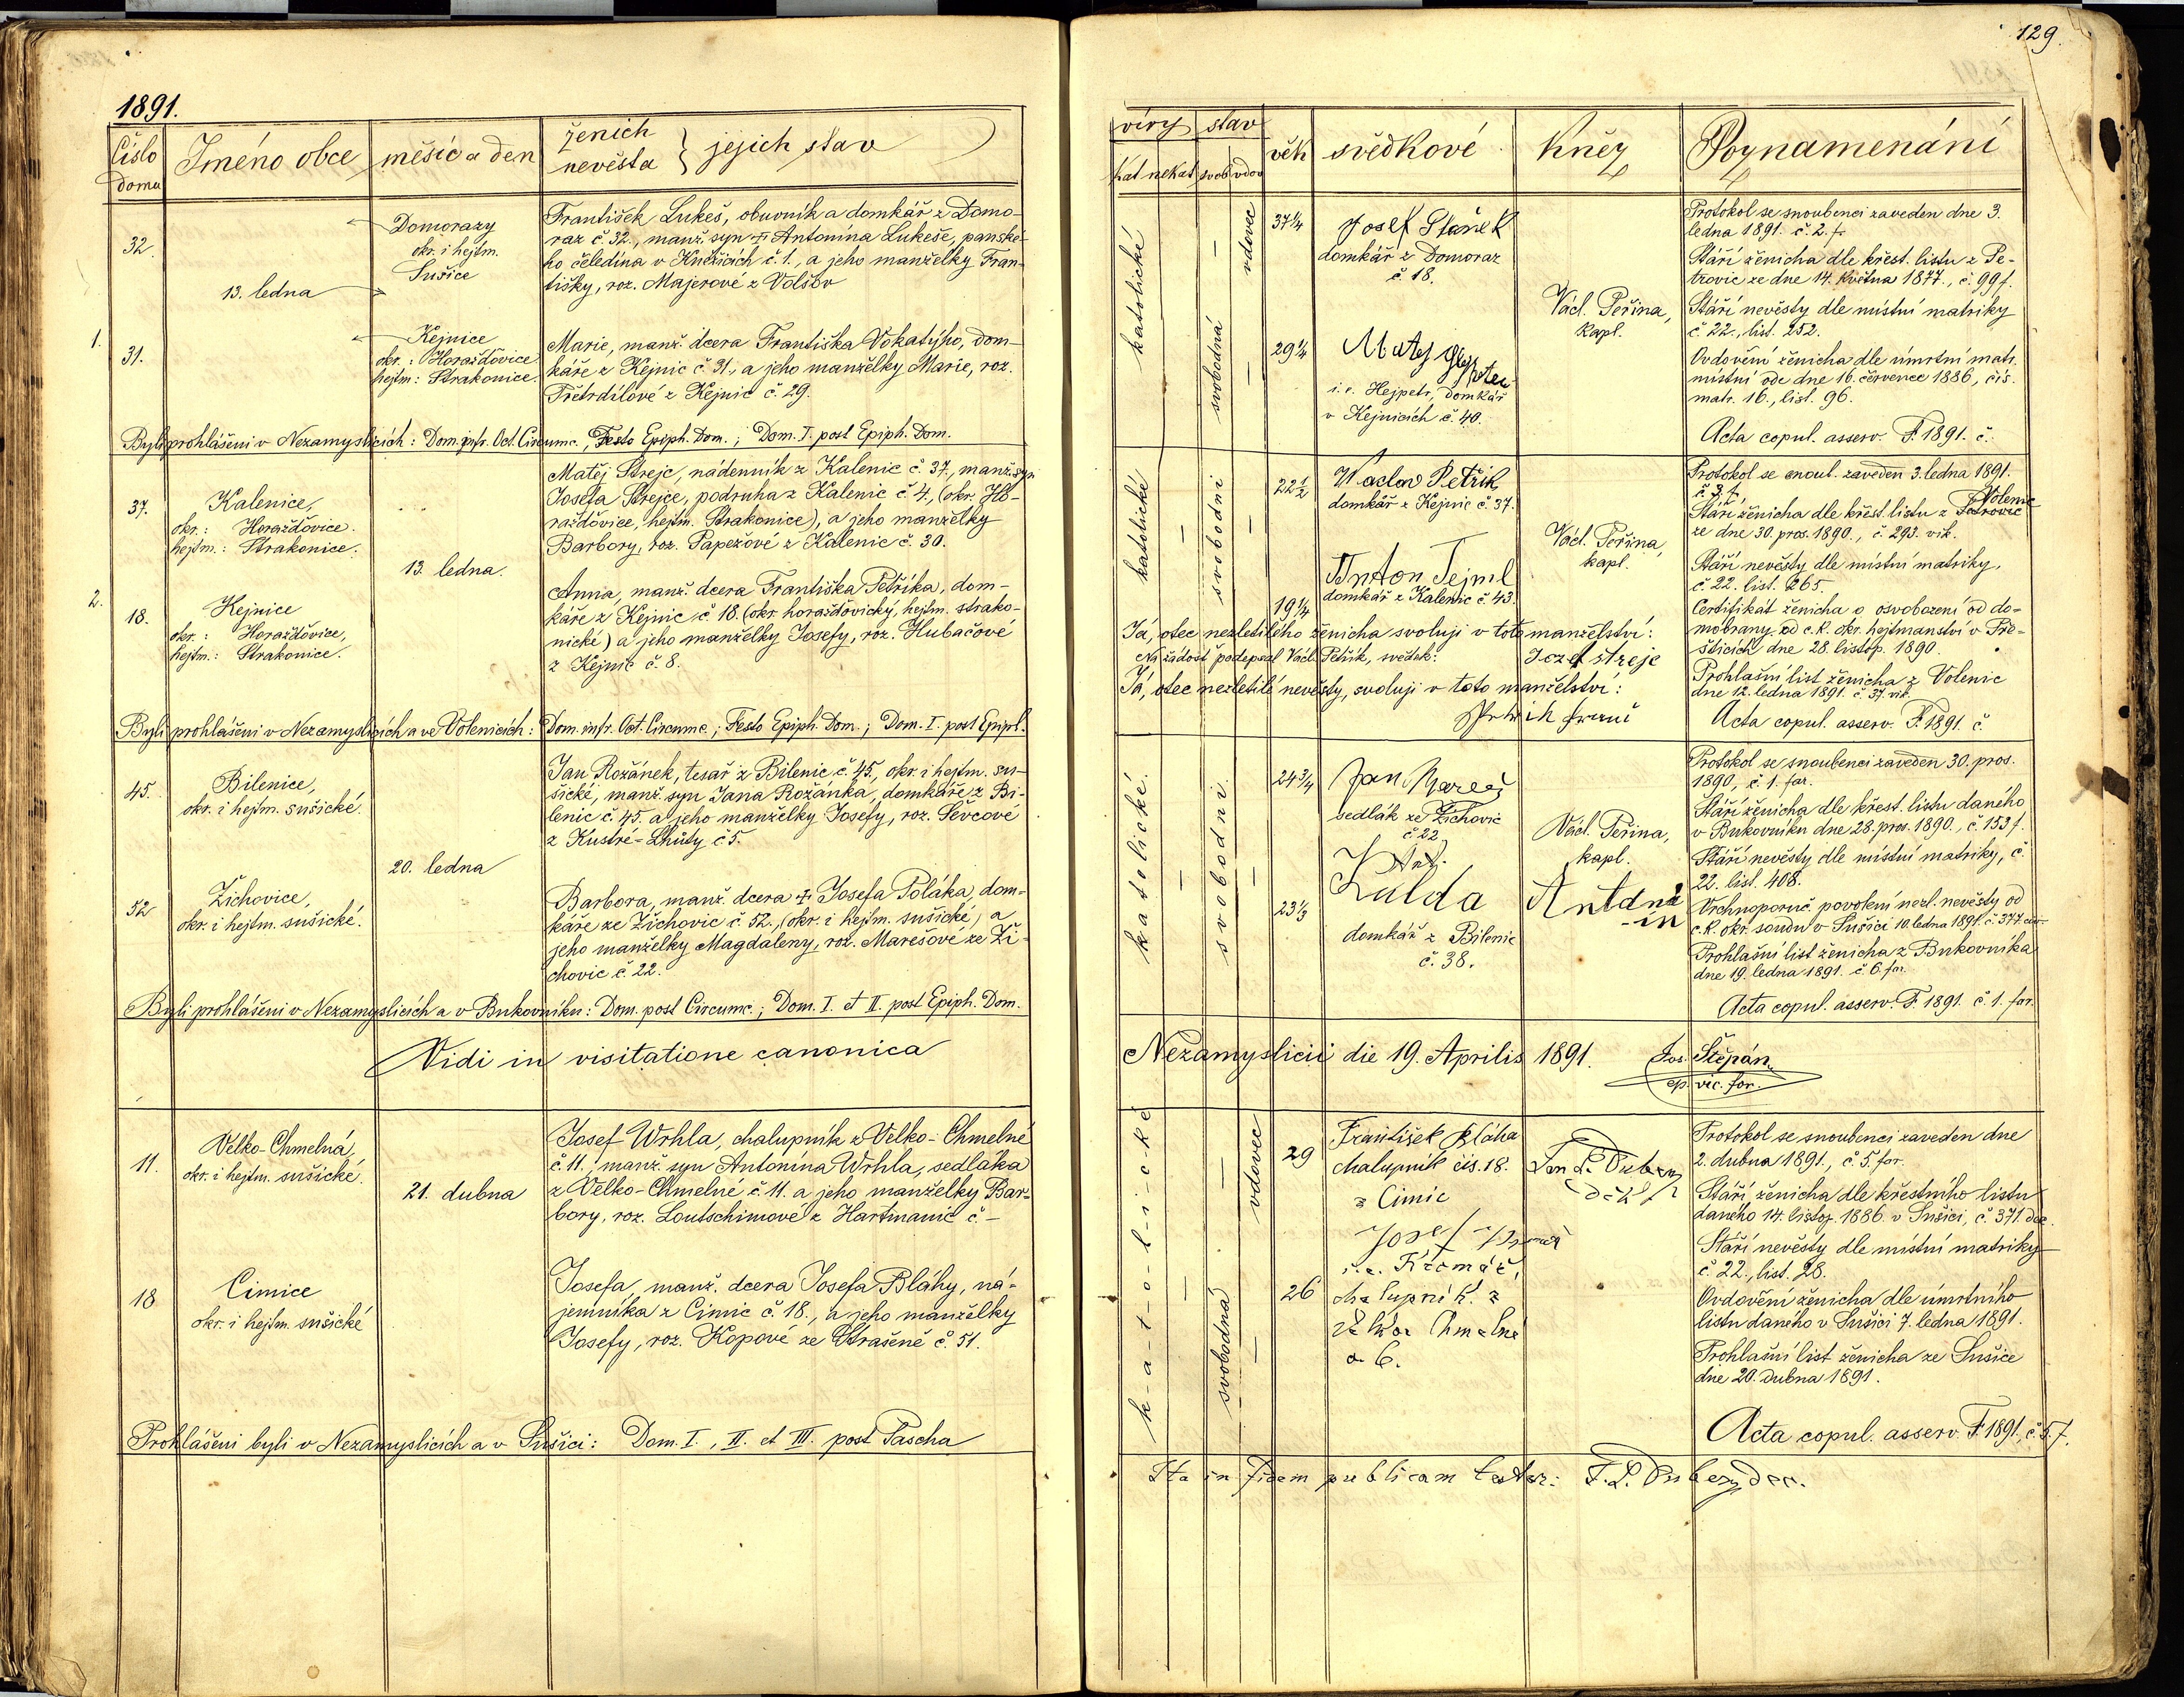 1891.
Číslo domu
Jméno obce
měsíc a den
ženich
nevěsta } jejich stav
32.
13. ledna
Domorazy
okr. i hejtm.
Sušice
František Lukeš, obuvník a domkář z Domo-
raz č. 32., manž. syn † Antonína Lukeše, panské-
ho čeledína v Kněžicích č. 1., a jeho manželky Fran-
tišky, roz. Majerové z Volšov
1.
31.
Kejnice
okr.: Horažďovice
hejtm: Strakonice.
Marie, manž. dcera Františka Vokatýho, dom-
káře z Kejnic č. 31., a jeho manželky Marie, roz.
Třetrdílové z Kejnic č. 29.
Byli prohlášeni v Nezamyslicích: Dom. infr. Oct. Circumc., Festo Epiph. Dom.; Dom. I. post Epiph. Dom.
37.
Kalenice,
okr.: Horažďovice.
hejtm.: Strakonice.
13. ledna.
Matěj Strejc, nádenník z Kalenic č. 37., manž. syn
Josefa Strejce, podruha z Kalenic č. 4., (okr. Ho-
ražďovice, hejtm. Strakonice), a jeho manželky
Barbory, roz. Papežové z Kalenic č. 30.
2.
18.
Kejnice
okr.: Horažďovice,
hejtm.: Strakonice.
Anna, manž. dcera Františka Petříka, dom-
káře z Kejnic č. 18. (okr. horažďovický, hejtm. strako-
nické) a jeho manželky Josefy, roz. Hubačové
z Kejnic č. 8.
Byli prohlášeni v Nezamyslicích a ve Volenicích: Dom. infr. Oct. Circumc.; Festo Epiph. Dom.; Dom. I. post Epiph.
45.
Bilenice,
okr. i hejtm. sušické.
20. ledna
Jan Rožánek, tesař z Bilenic č. 45., okr. i hejtm. su-
šické, manž. syn Jana Rožánka, domkáře z Bi-
lenic č. 45. a jeho manželky Josefy, roz. Ševcové
z Kustré-Lhůty č. 5.
52
Žichovice,
okr. i hejtm. sušické.
Barbora, manž. dcera † Josefa Poláka, dom-
káře ze Žichovic č. 52., (okr. i hejtm. sušické) a
jeho manželky Magdaleny, roz. Marešové ze Ži-
chovic č. 22.
Byli prohlášeni v Nezamyslicích a v Bukovníku: Dom. post Circumc.; Dom. I. et II. post Epiph. Dom.
Vidi in visitatione canonica
11.
Velko-Chmelná,
okr. i hejtm. sušické.
21. dubna
Josef Wrhla, chalupník z Velko-Chmelné
č. 11., manž. syn Antonína Wrhla, sedláka
z Velko-Chmelné č. 11. a jeho manželky Bar-
bory, roz. Loutschimové z Hartmanic č. -
18
Cimice
okr. i hejtm. sušické
Josefa, manž. dcera Josefa Bláhy, ná-
jemníka z Cimic č. 18., a jeho manželky
Josefy, roz. Kopové ze Strašeně č. 51.
Prohlášeni byli v Nezamyslicích a v Sušici: Dom. I., II. et III. post Pascha
129.
víry
stav
kat nekat
svob vdov
věk
svědkové
Kněz
Poznamenání
katolické
vdovec
svobodná
37 1/4
29 1/4
Josef Staněk
domkář z Domoraz
č. 18.
Matej
i. e. Hejpetr, domkář
v Kejnicích č. 40.
Václ. Peřina,
kapl.
Protokol se snoubenci zaveden dne 3.
ledna 1891. č. 2. f.
Stáří ženicha dle křest. listu z Pe-
trovic ze dne 14. května 1877., č. 99 f.
Stáří nevěsty dle místní matriky
č. 22., list. 252.
Ovdovění ženicha dle úmrtní matr.
místní ode dne 16. července 1886, čís.
matr. 16., list. 96.
Acta copul. asserv. F. 1891. č.
katolické
svobodní
22 1/2
19 1/4
Waclav Petřik
domkář z Kejnic č. 37.
Anton Tejml
domkář z Kalenic č. 43.
Václ. Peřina,
kapl.
Protokol se snoub. zaveden 3. ledna 1891.
č. 3. f.
Volenic
Stáří ženicha dle křest. listu z Petrovic
ze dne 30. pros. 1890., č. 293. vik.
Stáří nevěsty dle místní matriky,
č. 22. list. 265.
Certifikát ženicha o osvobození od do-
mobrany od c. k. okr. hejtmanství v Pře-
šticích dne 28. listop. 1890.
Prohlašní list ženicha z Volenic
dne 12. ledna 1891. č. 37. vik.
Acta copul. asserv. F. 1891. č.
Já, otec nezletilého ženicha svoluji v toto manželství:
Na žádost podepsal Václ. Petřík, svědek: Jozef Strejc
Já, otec nezletilé nevěsty, svoluji v toto manželství:
katolické.
svobodní.
24 3/4
23 1/3
Jan Mareš
sedlák ze Žichovic
č. 22
Kalda
domkář z Bilenic
č. 38.
Václ. Peřina,
kapl.
Antonín
Protokol se snoubenci zaveden 30. pros.
1890., č. 1. for.
Stáří ženicha dle křest. listu daného
v Bukovníku dne 28. pros. 1890., č. 153 f.
Stáří nevěsty dle místní matriky, č.
22. list. 408.
Vrchnoporuč. povolení nezl. nevěsty od
c. k. okr. soudu v Sušici 10. ledna 1891. č. 377 civ.
Prohlašní list ženicha z Bukovníka
dne 19. ledna 1891. č. 6. for.
Acta copul. asserv. F. 1891. č. 1. for.
Nezamyslicii die 19. Aprilis 1891.
Jos. Štěpán,
ep. vic. for.
k-a-t-o-l-i-c-k-é
vdovec
svobodná
29
26
František Bláha
chalupník čís. 18.
z Cimic
Josef
i. e. Krčmář,
chalupník z
Velkor Chmelné
č. 6.
děk
Protokol se snoubenci zaveden dne
2. dubna 1891., č. 5. for.
Stáří ženicha dle křestního listu
daného 14. listop. 1886. v Sušici, č. 371. dec.
Stáří nevěsty dle místní matriky
č. 22., list. 28.
Ovdovění ženicha dle úmrtního
listu daného v Sušici 7. ledna 1891.
Prohlašní list ženicha ze Sušice
dne 20. dubna 1891.
Acta copul. asserv. F. 1891., č. 5. f.
Ita in fidem publicam testor: